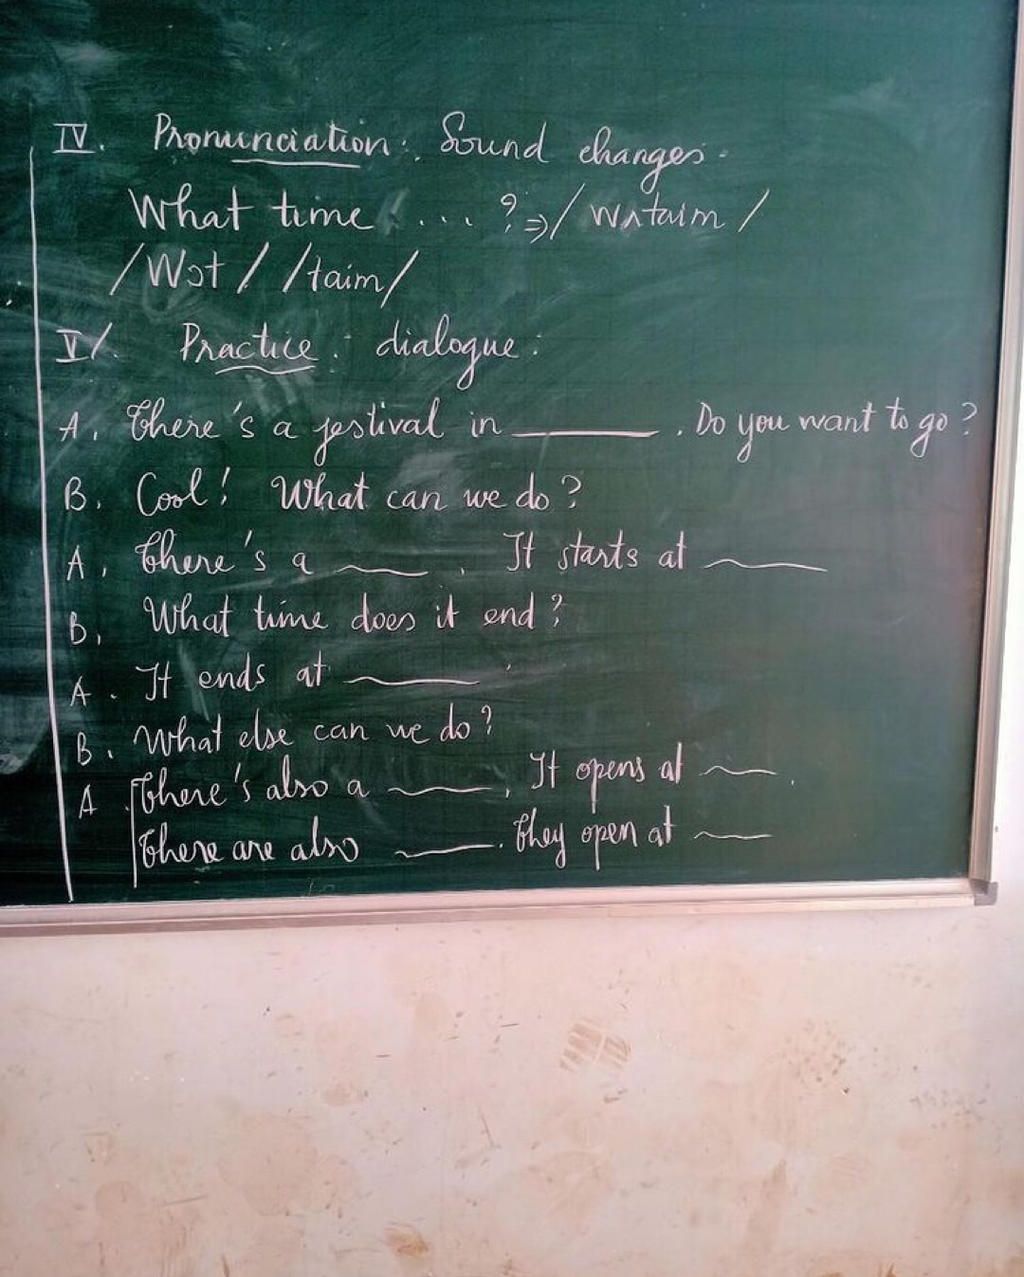 IV. Pronunciation: Sound changes.
What time ... ? ⇒ /wʌtaim/
/Wɔt/ /taim/
V/. Practice: dialogue:
A. There's a festival in ______. Do you want to go?
B. Cool! What can we do?
A. There's a ______. It starts at ______
B. What time does it end?
A. It ends at ______.
B. What else can we do?
A. There's also a ______. It opens at ______.
There are also ______. They open at ______